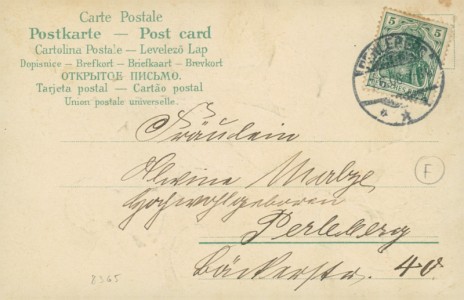 Carte Postale
Postkarte — Post card
Cartolina Postale — Levelező Lap
Dopisnice — Brefkort — Briefkaart — Brevkort
ОТКРЫТОЕ ПИСЬМО.
Tarjeta postal — Cartão postal
Union postale universelle.
5 5
Fräulein
Alwine
Hochwohlgeboren
Perleberg
Bäckerstr. 40
F
8365